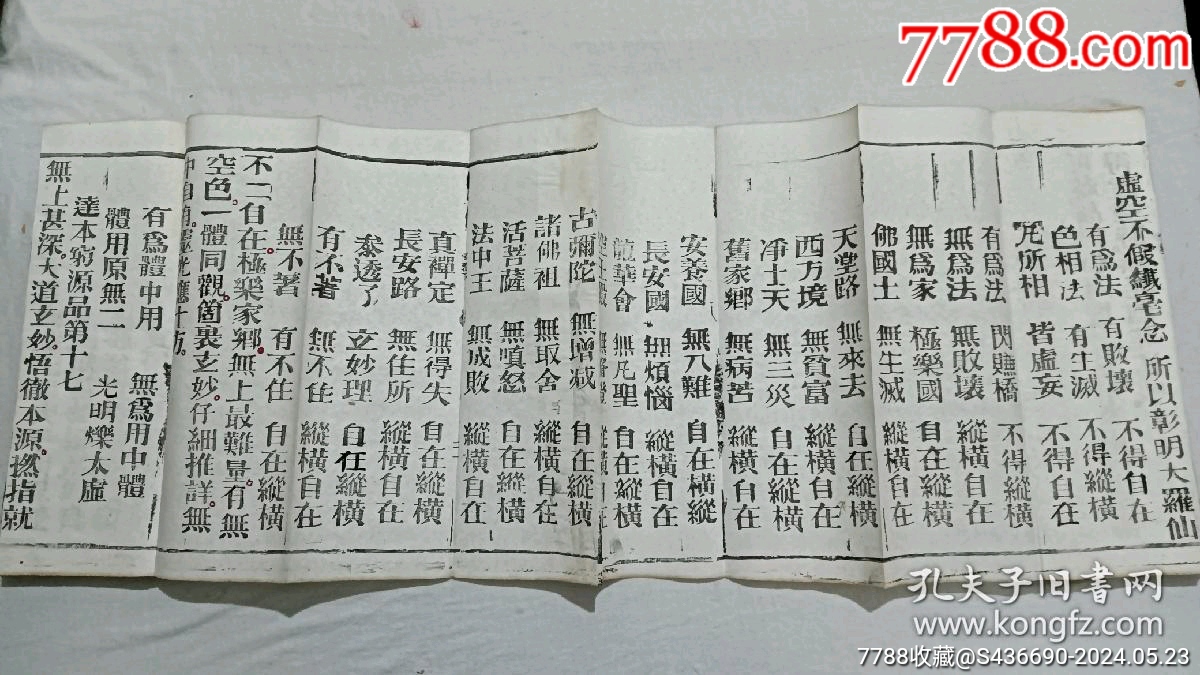 7788.com
虛空不假纖毫念 所以彰明大羅仙
有爲法 有敗壞 不得自在
色相法 有生滅 不得縱橫
凡所相 皆虛妄 不得自在
有爲法 閃賺橋 不得縱橫
無爲法 無敗壞 縱橫自在
無爲家 極樂國 自在縱橫
佛國土 無生滅 縱橫自在
天堂路 無來去 自在縱橫
西方境 無貧富 縱橫自在
凈土天 無三災 自在縱橫
舊家鄉 無病苦 縱橫自在
安養國 無八難 自在橫縱
長安國 無煩惱 縱橫自在
龍華會 無凡聖 自在縱橫
古彌陀 無增减 自在縱橫
諸佛祖 無取舍 縱橫自在
活菩薩 無嗔怒 自在縱橫
法中王 無成敗 縱橫自在
真禪定 無得失 自在縱橫
長安路 無住所 縱橫自在
叅透了 玄妙理 自在縱橫
有不著 無不住 縱橫自在
無不著 有不住 自在縱橫
不一自在。極樂家鄉。無上最難量。有無
空色。一體同觀。箇裏玄妙。仔細推詳。無
中自有。靈光應十方。
有爲體中用 無爲用中體
體用原無二 光明爍太虛
達本窮源品第十七
無上甚深。大道玄妙。悟徹本源。撚指就
孔夫子旧书网
www.kongfz.com
7788收藏@S436690-2024.05.23